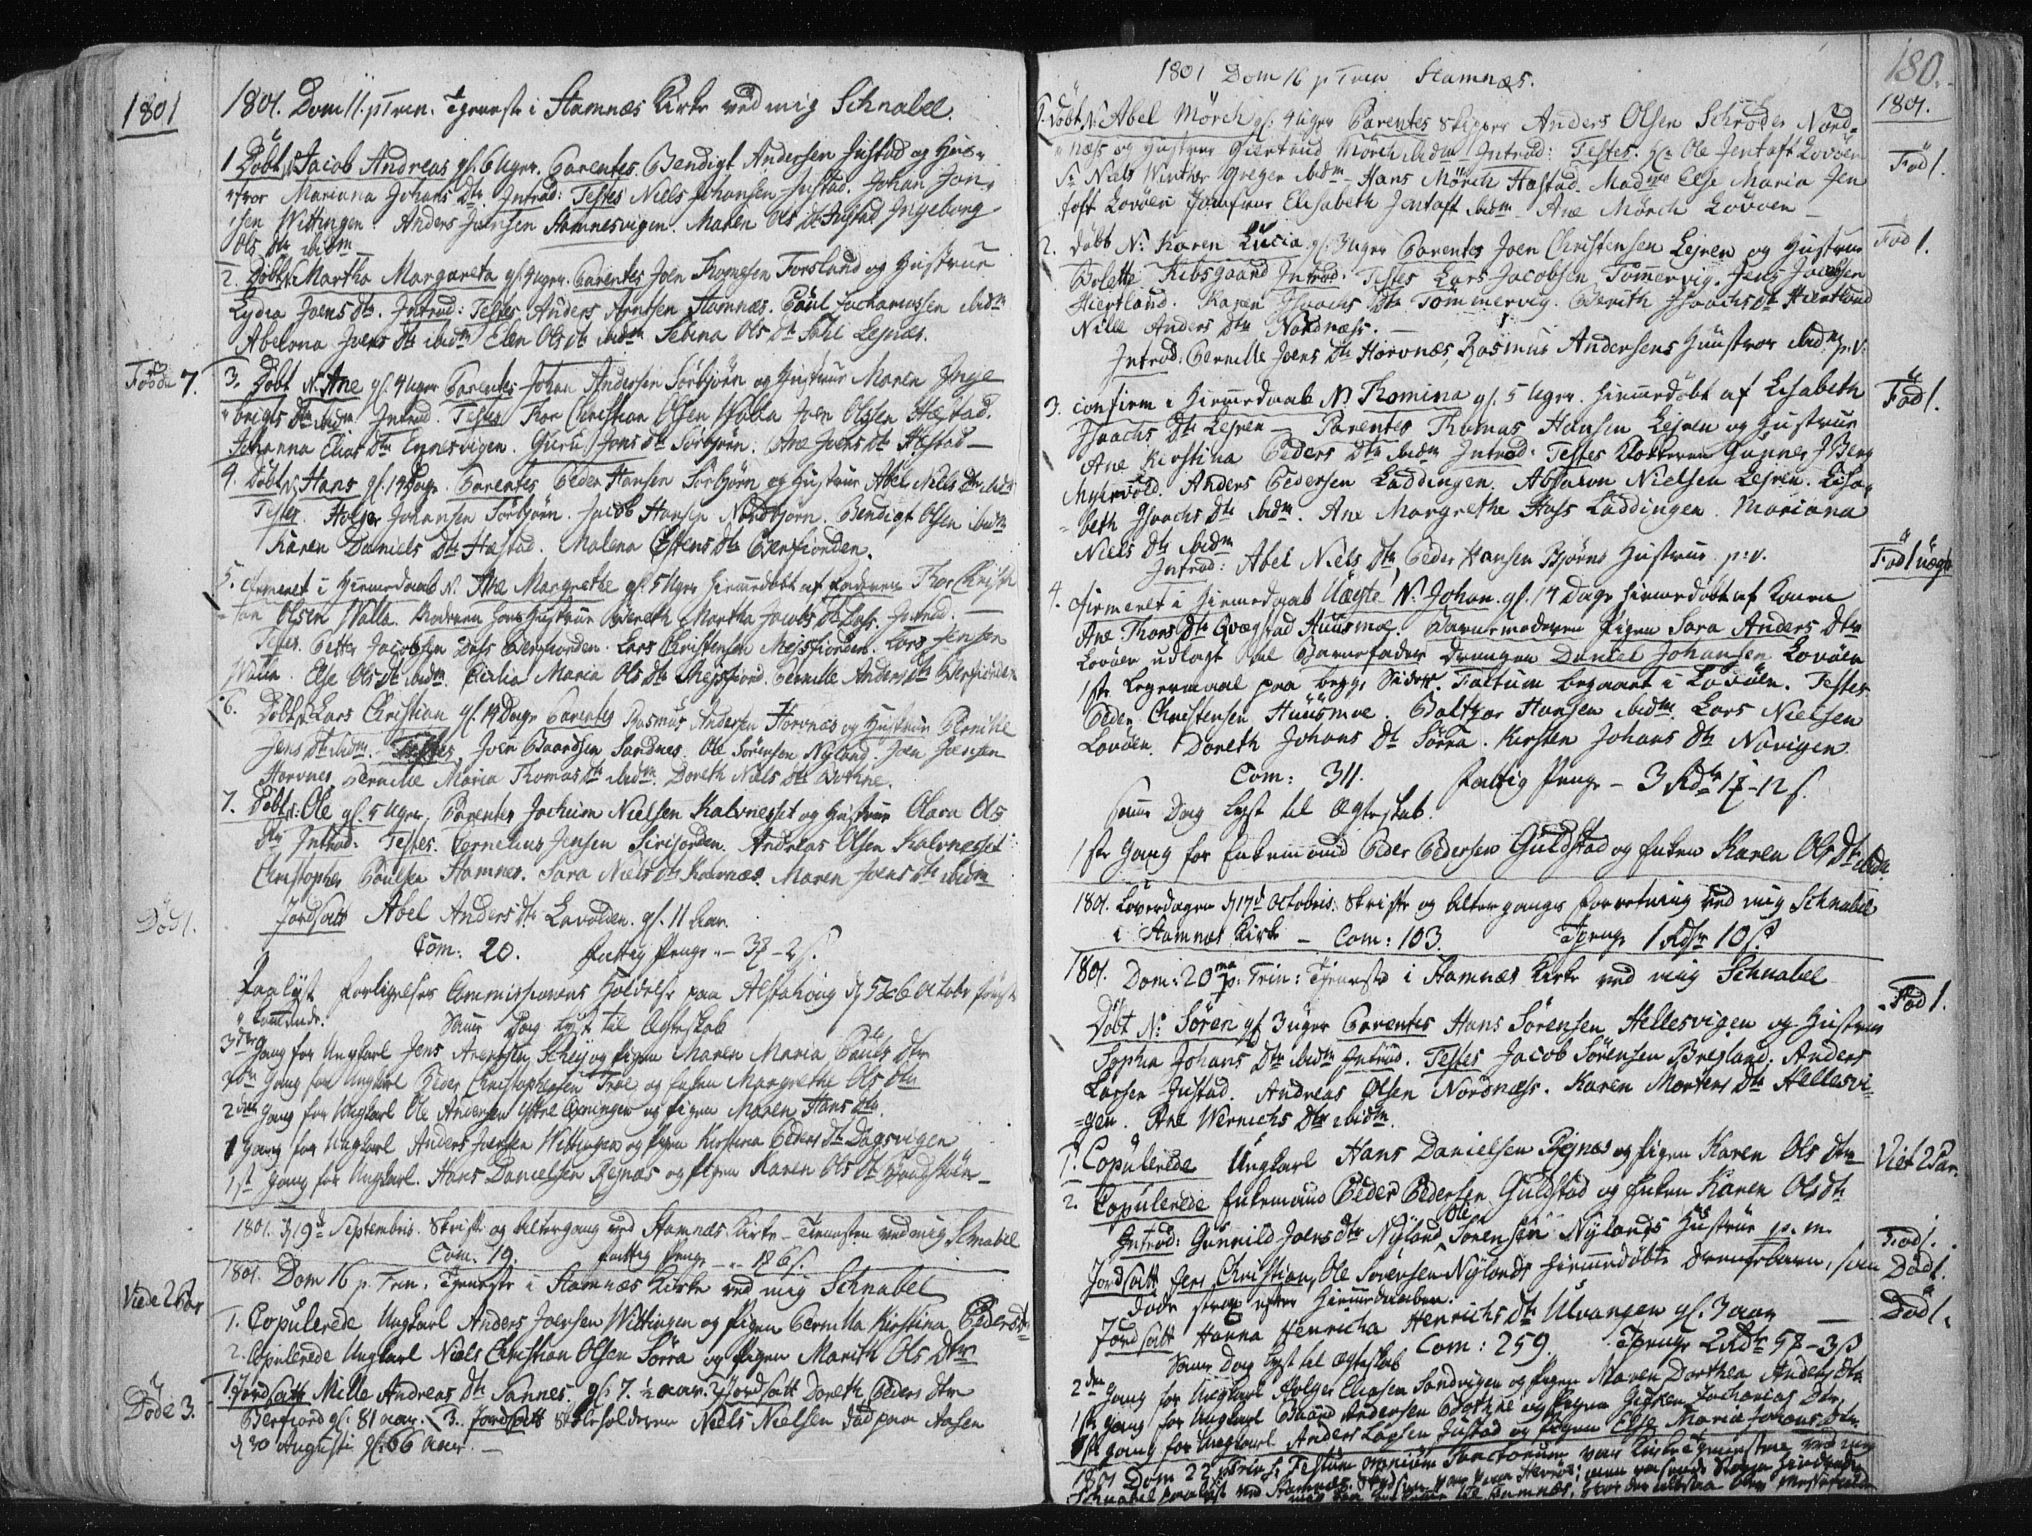 1801
1801. Dom 11. p Trin. Tieneste i Stamnæs Kirke ved mig Schnabel.
1 Döbt N. Jacob Andreas gl. 6 Uger. Parentes Bendigt Andersen Justad og Hus-
true Mariana Johans Dtr. Introd: Testes Niels Johansen Justad. Johan Jon-
sen Wittingen. Anders Joensen Hamnesvigen. Maren Ols Dtr Justad Ingeborg
Ols Dtr ibidm
2. Döbt N. Martha Margareta gl. 4 Uger. Parentes Joen Thomesen Forsland og Hustrue
Lydia Joens Dtr. Introd: Testes Anders Arntsen Stamnæs. Paul Zachariassen ibidm
Abelona Joens Dtr ibidm Elen Ols Dtr ibidm Sebina Ols Dtr Lejnæs.
Födde 7.
3. Döbt N. Ane gl. 4 Uger Parentes Johan Andersen Sörbjörn og Hustrue Maren Inge
brigts Dtr ibidm Introd. Testes Thor Christian Olsen Walla Joen Olsen Hæstad.
Johanna Elias Dtr Guru Jons Dtr Sörbjörn. Ane Joens Dtr Hæstad —
4. Döbt N. Hans gl. 14 Dage. Parentes Peder Hansen Sörbjörn og Hustrue Abel Niels Dtr ibidm
Testes. Holger Johansen Sörbjörn. Jacob Hansen Nordbjörn. Bendigt Olsen ibidm
Karen Daniels Dtr Hæstad. Malena Estens Dtr Berfiorden.
5. firmeret i Hiemedaab N. Ane Margrethe gl. 5 Uger hiemedöbt af Faderen Thor Christi
an Olsen Walla. Moderen hans Hustrue Bereth Martha Jacobs Dtr Introd.
Testes. Petter Jacobsen Berfiorden. Lars Christensen Mejsfiorden. Lars Jensen
Walla. Else Ols Dtr ibidm. Cicilia Maria Ols Dtr Mejsfiord. Pernille Anders Dtr Berfiorden
6. Döbt N. Lars Christian gl. 14 Dage Parentes Rasmus Andersen Horvnæs og Hustrue Pernille
Jens Dtr ibidm. Testes Joen Baardsen Sandnes. Ole Sörensen Nyland. Joen Joensen
Horvnes. Pernille Maria Thomas Dtr ibidm. Doreth Niels Dtr Bothne.
7. Döbt N. Ole gl. 5 Uger, Parentes Jochum Nielsen Kalvnesset og Hustrue Olava Ols
Dtr Introd: Testes. Cornelius Jensen Andreas Olsen Kalvnesset
Christopher Poulsen Stamnes. Sara Niels Dtr Kalvnæs. Maren Joens Dtr ibidm
Död 1.
Jordsatt Abel Anders Dtr gl. 11 Aar.
Com: 20. Fattig Penge — 3 — 2 s.
Paalyst Forligelses Commissionens Holdelse paa Alstahoug d 5 & 6 October först-
kommende. Samme Dag Lyst til Ægteskab
3die Gang for Ungkarl Jens Arentsen og Pigen Maren Maria Pauls Dtr
Gang for Ungkarl Peder Christophersen og Enken Margrethe Ols Dtr
2den Gang for Ungkarl Ole Andersen og Pigen Maren Hans Dtr.
1 Gang for Ungkarl Anders Joensen Wittingen og Pigen Kirstina Peders Dtr Dagsvigen
1ste Gang for Ungkarl. Hans Danielsen Rejnæs og Pigen Karen Ols Dtr
1801. d 19de Septembris. Skrifte og Altergang ved Stamnæs Kirke — Tienesten ved mig Schnabel
Com. 19. Fattig Penge
1801. Dom 16 p. Trin. Tieneste i Stamnæs Kirke ved mig Schnabel
Viede 2 Par
1. Copulerede Ungkarl Anders Joensen Wittingen og Pigen Pernilla Kirstina Peders Dtr
2. Copulerede Ungkarl Niels Christian Olsen Sörra og Pigen Marith Ols Dtr
Döde 3.
1. Jordsatt Mille Andreas Dtr Sannes gl. 7. ½ aar. 2 Jordsatt Doreth Peders Dtr
Berfiord gl. 81 aar. 3. Jordsatt Skoleholderen Niels Nielsen död paa Aasen
d 30 Augusti gl. 66 Aar. —
1801 Dom 16 p Trin Stamnæs.
180.
1801.
1. Döbt N. Abel Mörch gl. 4 Uger Parentes Skipper Anders Olsen Schröder Nord-
næss og Hustrue Giertrud Mörch ibidm — Introd: Testes. Hr. Ole Jentoft Lovöen
Sr Niels Winther Greger ibidm. Hans Mörch Hastad. Madme Else Maria Jen
toft Lovöen Jomfrue Elisabeth Jentoft ibidm — Ane Mörch Lovöen —
Föd 1.
2. Döbt N. Karen Lucia gl. 3 Uger Parentes Joen Christensen Lejren og Hustrue
Bolette Kibsgaard Introd. Testes Lars Jacobsen Tömervig. Jens Jacobsen
Hiertland. Karen Isaachs Dtr Tömmervig. Berith Isaachs Dtr Hiertland
Nille Anders Dtr Nordnæss. —
Föd 1.
Introd: Pernille Joens Dtr Horvnæs, Rasmus Andersens Hustroe ibidm p: v:
3. confirm i Hiemedaab N. Thomina gl. 5 Uger. hiemedöbt af Lisabeth
Isaachs Dtr Lejren — Parentes Thomas Hansen Lejren og Hustrue
Ane Kirstina Peders Dtr ibidm Introd: Testes Gunner J Berg
Myhrvold. Anders Pedersen Laddingen. Absalon Nielsen Lejren. Lisa-
beth Isaachs Dtr ibidm. Ane Margrethe Hass Laddingen. Mariana
Niels Dtr ibidm
Föd 1.
Introd: Abel Niels Dtr, Peder Hansen Björns Hustrue p: v.
Föd 1 uægte
4. firmeret i Hiemedaab Uægte N. Johan. gl. 14 Dage hiemedöbt af Konen
Ane Thors Dtr Qvægstad Huusmoe. Barnemoderen Pigen Sara Anders Dtr
Lovöen udlagt til Barnefader Drengen Daniel Johansen Lovöen
1ste Legermaal paa begge Sider. Factum begaaet i Lovöen. Testes
Peder Christensen Huusmoe. Baltzer Hansen ibidm. Lars Nielsen
Lovöen. Doreth Johans Dtr Sörra. Kirsten Johans Dtr Novigen
Com: 311. Fattig Penge — 3 Rdr 1 — 12 s.
Samme Dag Lyst til Ægteskab.
1ste Gang for Enkemand Peder Pedersen Guldstad og Enken Karen Ols Dtr ibidm
1801. Löverdagen d 17de Octobris. Skrifte og Altergangs Forretning ved mig Schnabel
i Stamnæs Kirke — Com: 103. Tpenge 1 Rdr 10 s.
1801. Dom: 20ma p: Trin: Tieneste i Stamnæs Kirke ved mig Schnabel
Föd 1.
Döbt N. Sören gl 3 uger Parentes Hans Sörensen Hellesvigen og Hustrue
Sophia Johans Dtr ibidm Introd. Testes Jacob Sörensen Bregland. Anders
Larsen Justad. Andreas Olsen Nordnæss. Karen Mortens Dtr Hellesvi-
gen. Ane Wernichs Dtr ibidm.
1. Copulerede Ungkarl Hans Danielsen Rejnæs og Pigen Karen Ols Dtr
Viet 2 Par.
2. Copulerede Enkemand Peder Pedersen Guldstad og Enken Karen Ols Dtr
Introd: Gunnild Joens Dtr Nyland, Ole Sörensen Nylands Hustrue p. m.
Föd 1.
Jordsatt Jens Christian, Ole Sörensen Nylands hiemedöbte Drengebarn, som
döde strax efter Hiemedaaben.
Död 1.
Jordsatt Hanna Henricha Henrichs Dtr Ulvangen gl. 3 aar
Död 1.
Com: 259. Tpenge 2 Rdr 5 — 3 s
Samme Dag lyst til Ægteskab
2den Gang for Ungkarl Holger Eliasen Sandvigen og Pigen Maren Dorthea Anders Dtr
1ste Gang for Ungkarl Baard Andersen Bothne og Pigen Zacharias Dtr
1ste Gang for Ungkarl Anders Larsen Justad og Pigen Else Maria Johans Dtr
1801 Dom 22 p Trin s. Festum omnium Sanctorum var Kirketieneste ved mig
Schnabel paalyst ved Stamnæs.